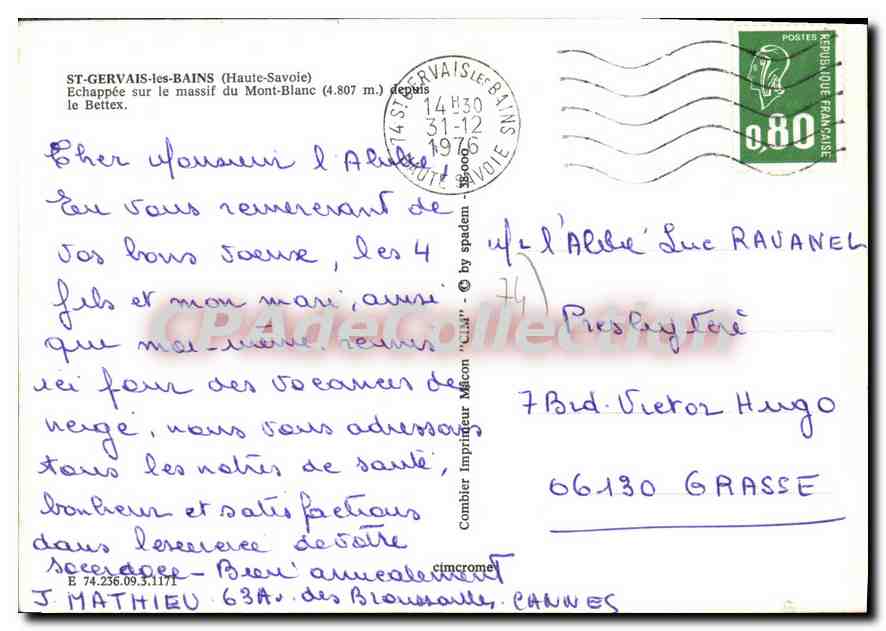 ST-GERVAIS-les-BAINS (Haute-Savoie)
Echappée sur le massif du Mont-Blanc (4.807 m.) depuis
le Bettex.
Cher Monsieur l'Abbé,
En vous remerciant de
vos bons voeux, les 4
fils et mon mari, ainsi
que moi-même, réunis
ici pour des vacances de
neige, nous vous adressons
tous les nôtres de santé,
bonheur et satisfactions
dans l'exercice de votre
sacerdoce - Bien amicalement
J. MATHIEU - 63 Av. des Broussailles. CANNES
E 74.236.09.3.1171
cimcrome
Combier Imprimeur Macon "CIM" - © by spadem - 38-000
74 ST-GERVAIS LES BAINS
14H30
31-12
1976
HAUTE SAVOIE
POSTES
REPUBLIQUE FRANÇAISE
0,80
l'Abbé Luc RAVANEL
74
Presbytère
7 Brd. Victor Hugo
06130 GRASSE
CPAdeCollection